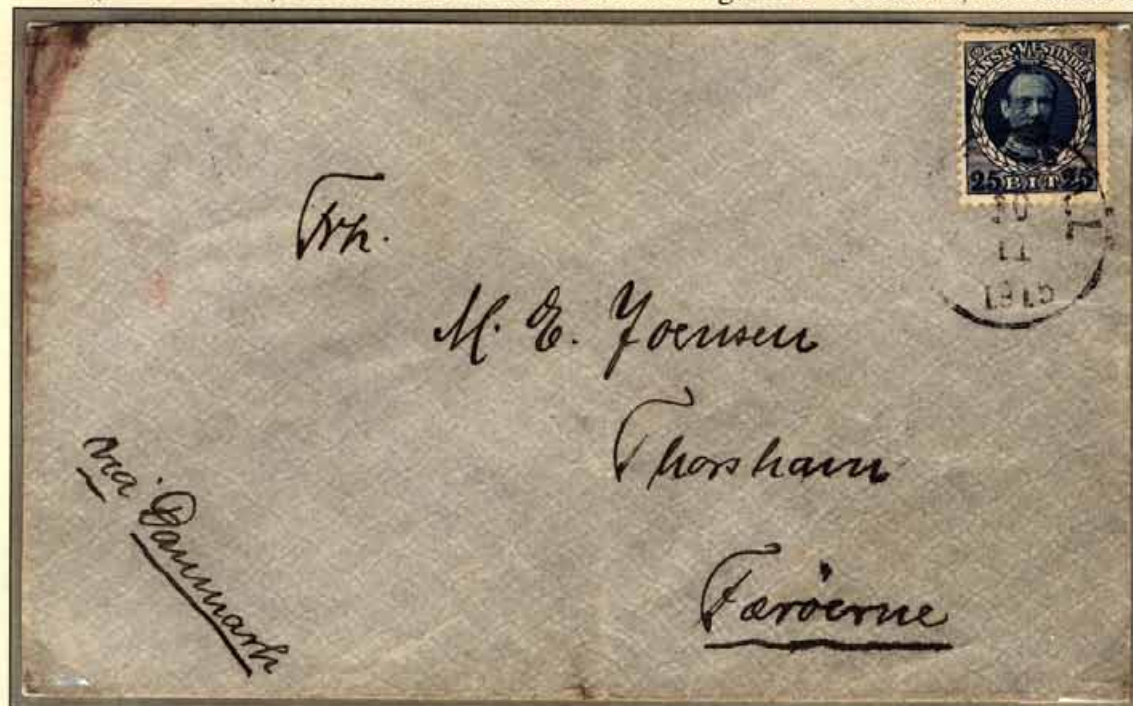 DANSK VESTINDIEN
25 BIT 25
11
1915
Frk.
M. E. Joensen
Thorshavn
Færöerne
via Danmark